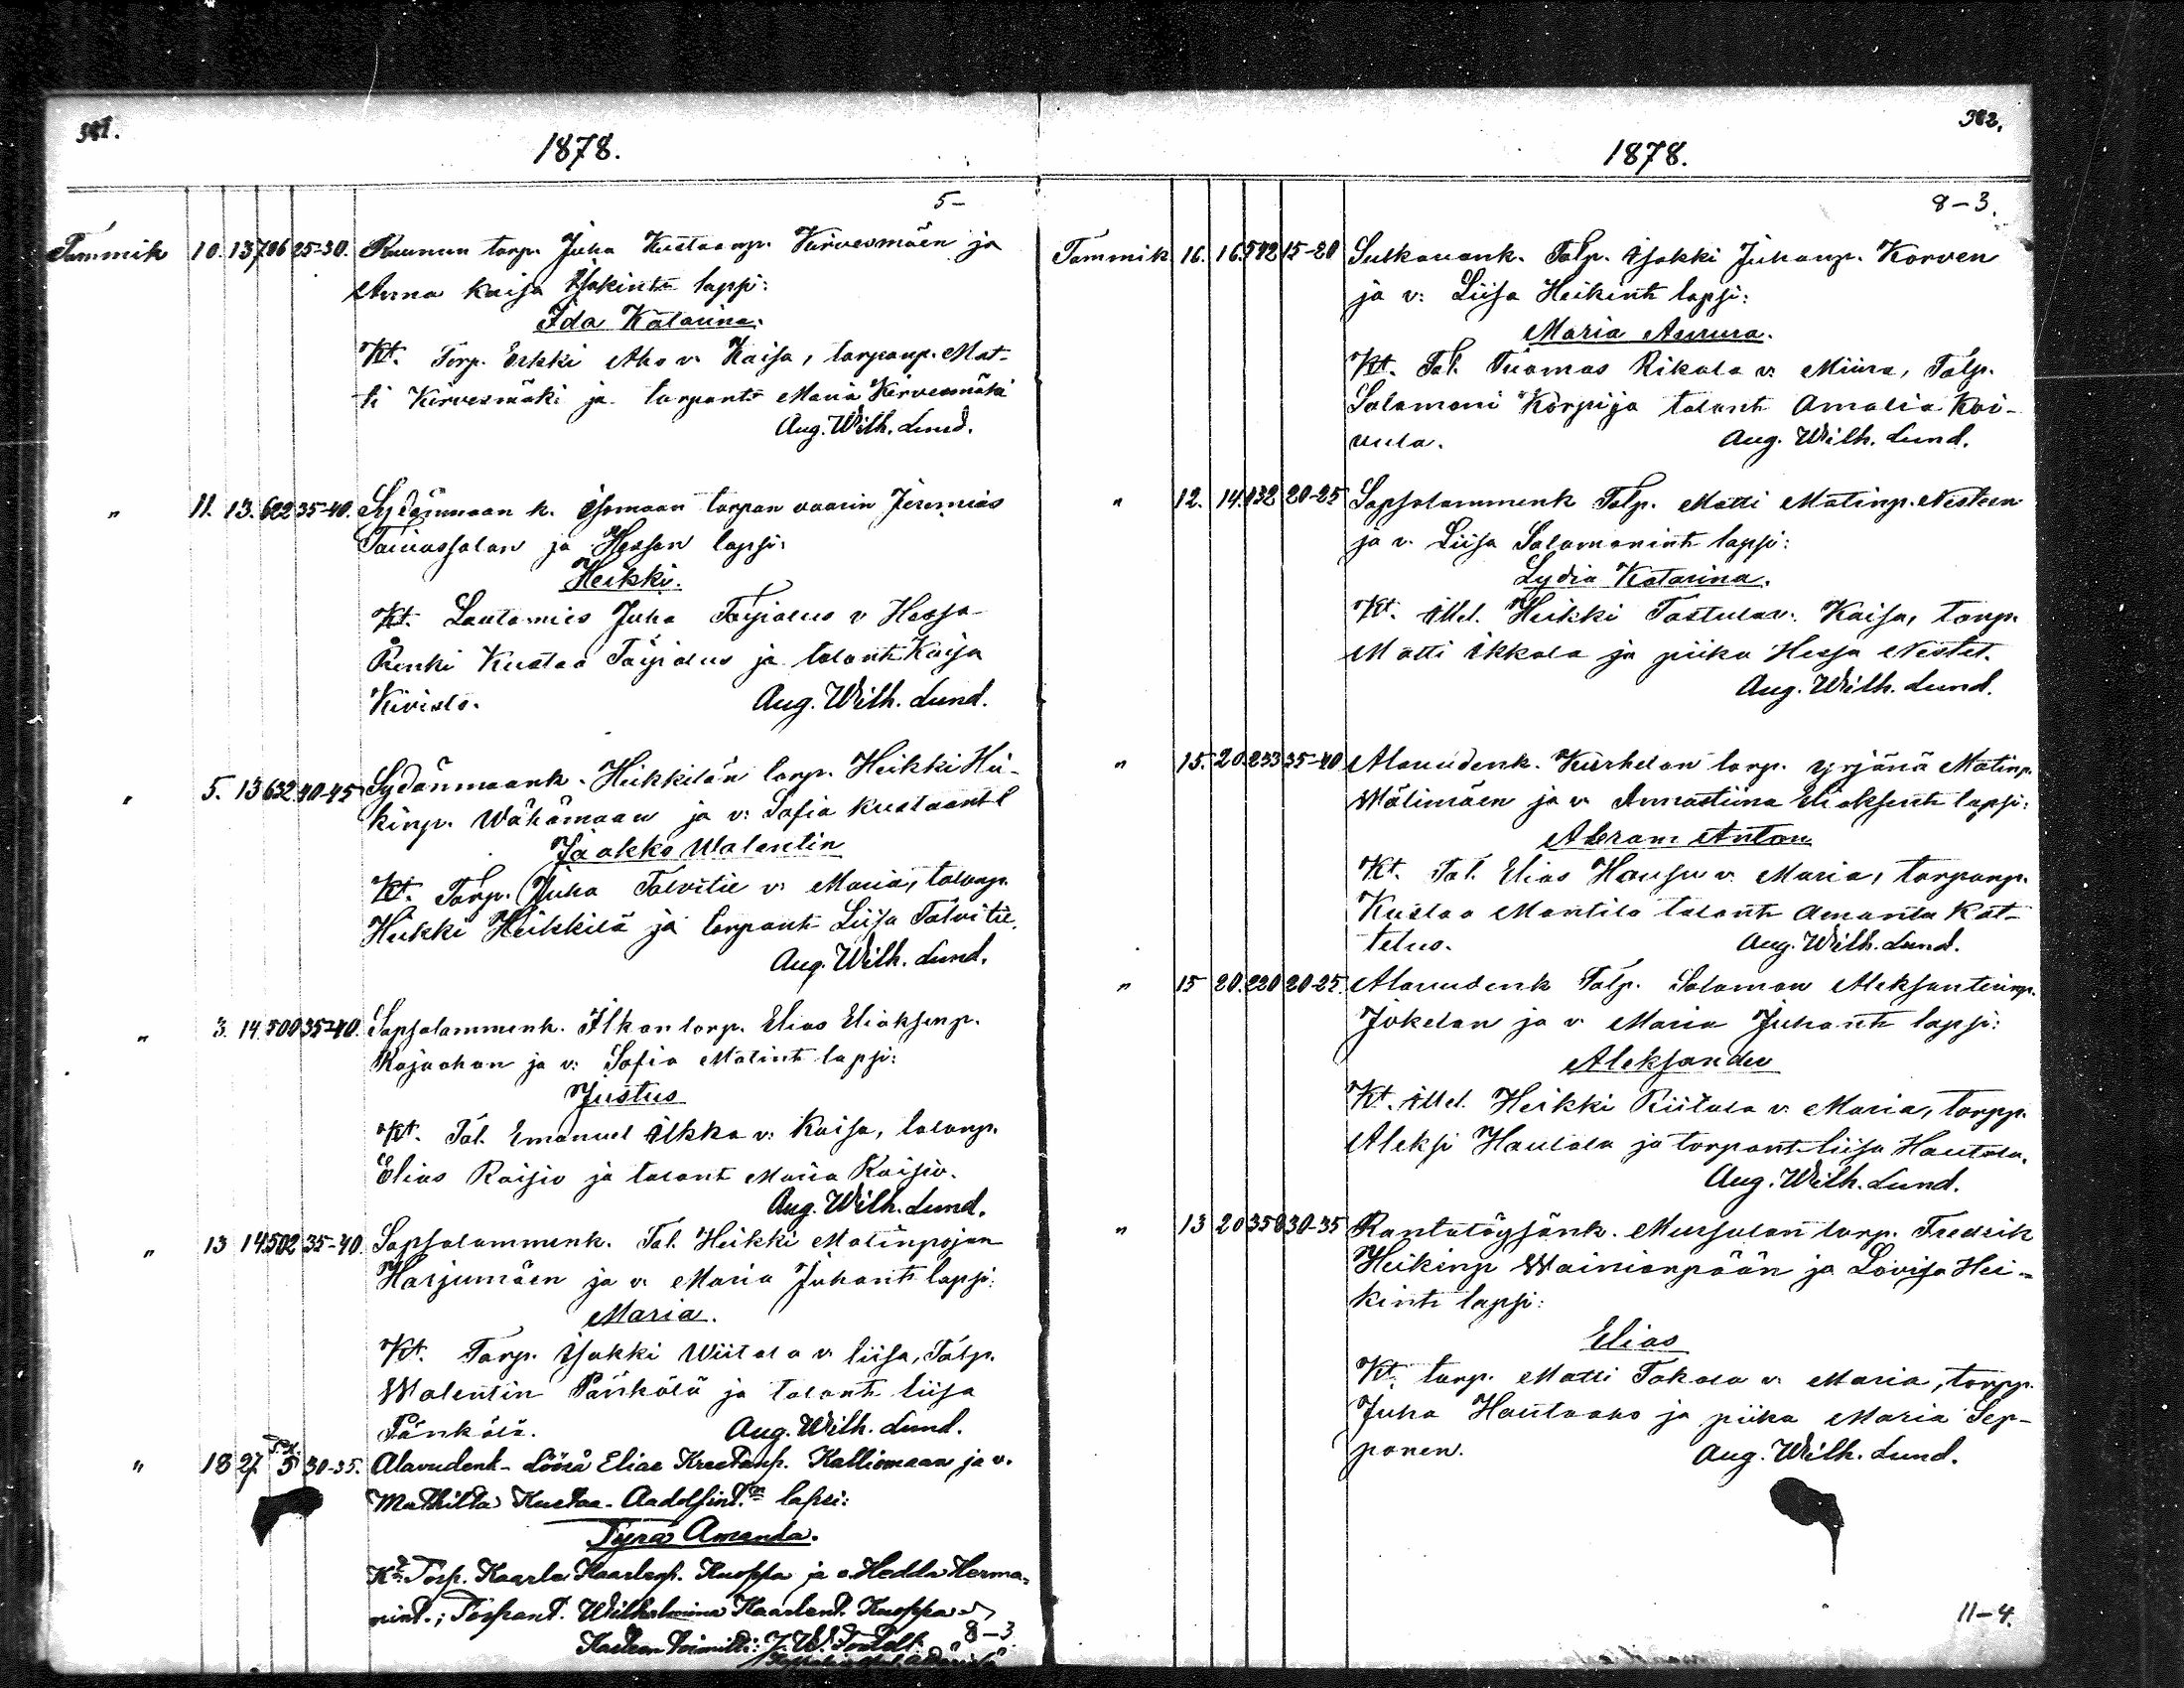 381.
1878.
5-
Tammik 10. 13 786 25-30. Ruunun torp. Juha Kustaanp. Kirvesmäen ja
Anna Kaisa Isakint:n lapsi:
Ida Katarina.
Kt. Torp. Erkki Aho v. Kaisa, torpanp. Mat-
ti Kirvesmäki ja torpant: Maria Kirvesmäki
Aug. Wilh. Lund.
" 11. 13. 622 35-40. Sydänmaan k. Isomaan torpan vaarin Jeremias
ja Hessan lapsi:
Heikki.
Kt. Lautamies Juha v Hessa
Renki Kustaa ja talont: Kaisa
Kivisto. Aug. Wilh. Lund.
" 5. 13 632 40-45 Sydänmaank. Heikkilän torp. Heikki Hei-
kinp. Wähämaan ja v: Sofia Kustaant:
Jaakko Walentin
Kt. Torp. Juha Talvitie v: Maria, talonp.
Heikki Heikkilä ja torpant: Liisa Talvitie.
Aug. Wilh. Lund.
" 3. 14. 500 35-40. Sapsalammenk. Ilkan torp. Elias Eliaksenp.
Rajaahon ja v: Sofia Matint: lapsi:
Justus
Kt. Tal. Emanuel Ilkka v: Kaisa, talonp.
Elias Raisio ja talont Maria Raisio.
Aug. Wilh. Lund.
" 13 14 502 35-40. Sapsalammenk. Tal. Heikki Matinpojan
Harjumäen ja v. Maria Juhant: lapsi:
Maria.
Kt. Torp. Isakki Wiitala v. Liisa, Talp.
Walentin Pänkälä ja talont: Liisa
Pänkälä. Aug. Wilh. Lund.
" 18 27 5 30-35. Alavudenk- Löösä Elias Kreetanp. Kalliomaan ja v.
Mathilta Kustaa-Aadolfint:n lapsi:
Tyra Amanda.
Kt: Torp. Kaarle Kaarlenp. Kuoppa ja v. Hedda Herma-
nint.; Torpant. Wilhelmina Kaarlent. Kuoppa
Kasteen toimitti: J. W. 8-3
382.
1878.
8-3.
Tammik 16. 16. 542 15-20 Sulkavank. Talp. Isakki Juhanp. Korven
ja v: Liisa Heikint: lapsi:
Maria Aurura.
Kt. Tal. Tuomas Rikala v. Miina, Talp.
Salamoni Korpi ja talont: Amalia Koi-
vula. Aug. Wilh. Lund.
" 12. 14. 432 20-25 Sapsalammenk Talp. Matti Matinp. Nesteen
ja v. Liisa Salamonint: lapsi:
Lydia Katarina.
Kt. Ittel. Heikki Tastula v. Kaisa, torp.
Matti Ikkala ja piika Hessa Nestet.
Aug. Wilh. Lund.
" 15. 20. 233 35-40 Alavudenk. Kurhelan torp. Yrjänä Matinp.
Wälimäen ja v. Annastiina Eliaksent: lapsi:
Abram Anton
Kt. Tal. Elias v. Maria, torpanp.
Kustaa Mantila talont: Amanta Kat-
telus. Aug. Wilh. Lund.
" 15 20. 220 20-25. Alavudenk Talp. Salamon Aleksanterinp.
Jokelan ja v. Maria Juhant: lapsi:
Aleksander
Kt. Ittel. Heikki Riitala v. Maria, torpp.
Aleksi Hautala ja torpant: Liisa Hautala.
Aug. Wilh. Lund.
" 13 20 358 30-35 Rantatöysänk. Mursulan torp. Fredrik
Heikinp Wainionpään ja Lovisa Hei-
kint: lapsi:
Elias
Kt. torp. Matti Takala v. Maria, torpp.
Juha Hautaaho ja piika Maria Sep-
ponen. Aug. Wilh. Lund.
11-4.